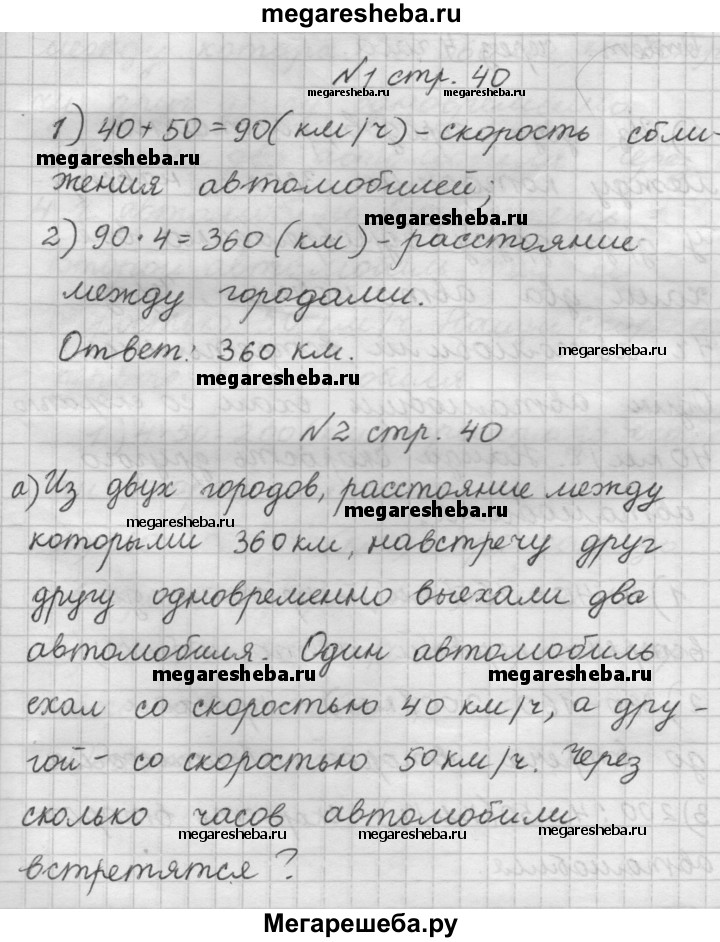 megaresheba.ru
№1 стр. 40
megaresheba.ru megaresheba.ru
1) 40 + 50 = 90 (км/ч) - скорость сбли-
megaresheba.ru
жения автомобилей;
megaresheba.ru
2) 90 · 4 = 360 (км) - расстояние
между городами.
Ответ: 360 км.
megaresheba.ru
megaresheba.ru
№2 стр. 40
а) Из двух городов, расстояние между
megaresheba.ru
megaresheba.ru
которыми 360 км, навстречу друг
другу одновременно выехали два
автомобиля. Один автомобиль
megaresheba.ru megaresheba.ru
ехал со скоростью 40 км/ч, а дру-
гой - со скоростью 50 км/ч. Через
сколько часов автомобили
megaresheba.ru megaresheba.ru megaresheba.ru
встретятся?
Мегарешеба.ру